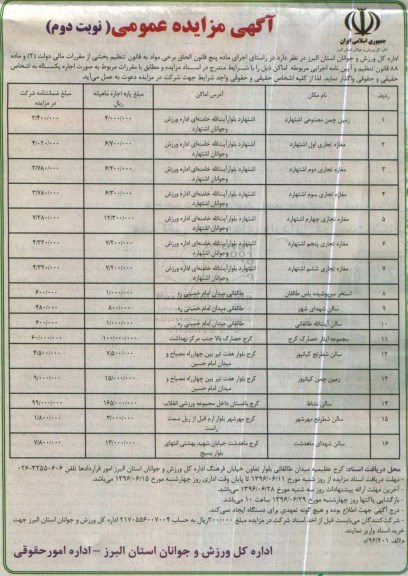 آگهی مزایده عمومی ( نوبت دوم)
جمهوری اسلامی ایران
اداره کل ورزش و جوانان استان البرز در نظر دارد در راستای اجرای ماده پنج قانون الحاق برخی مواد به قانون تنظیم بخشی از مقررات مالی دولت (۲) و ماده
۸۸ قانون تنظیم و آیین نامه اجرایی مربوطه اماکن ذیل را با شرایط مندرج در اسناد مزایده و مطابق با مقررات مربوط به صورت اجاره یکساله به اشخاص
حقیقی و حقوقی واگذار نماید. لذا از کلیه اشخاص حقیقی و حقوقی واجد شرایط جهت شرکت در مزایده دعوت به عمل می‌آید.
ردیف نام مکان آدرس اماکن مبلغ پایه اجاره ماهیانه ریال مبلغ ضمانتنامه شرکت در مزایده
۱ زمین چمن مصنوعی اشتهارد اشتهارد بلوار آیت‌الله خامنه‌ای اداره ورزش وجوانان اشتهارد ۴/۰۰۰/۰۰۰ ۲/۴۰۰/۰۰۰
۲ مغازه تجاری اول اشتهارد اشتهارد بلوار آیت‌الله خامنه‌ای اداره ورزش وجوانان اشتهارد ۶/۷۰۰/۰۰۰ ۴/۰۲۰/۰۰۰
۳ مغازه تجاری دوم اشتهارد اشتهارد بلوار آیت‌الله خامنه‌ای اداره ورزش وجوانان اشتهارد ۶/۳۰۰/۰۰۰ ۳/۷۸۰/۰۰۰
۴ مغازه تجاری سوم اشتهارد اشتهارد بلوار آیت‌الله خامنه‌ای اداره ورزش وجوانان اشتهارد ۶/۳۰۰/۰۰۰ ۳/۷۸۰/۰۰۰
۵ مغازه تجاری چهارم اشتهارد اشتهارد بلوار آیت‌الله خامنه‌ای اداره ورزش وجوانان اشتهارد ۱۲/۳۰۰/۰۰۰ ۷/۳۸۰/۰۰۰
۶ مغازه تجاری پنجم اشتهارد اشتهارد بلوار آیت‌الله خامنه‌ای اداره ورزش وجوانان اشتهارد ۷/۲۰۰/۰۰۰ ۴/۳۲۰/۰۰۰
۷ مغازه تجاری ششم اشتهارد اشتهارد بلوار آیت‌الله خامنه‌ای اداره ورزش وجوانان اشتهارد ۷/۲۰۰/۰۰۰ ۴/۳۲۰/۰۰۰
۸ استخر سرپوشیده یاس طالقان طالقانی میدان امام خمینی ره ۱/۰۰۰/۰۰۰ ۶۰۰/۰۰۰
۹ سالن شهدای شهر طالقانی میدان امام خمینی ره ۸۰۰/۰۰۰ ۴۸۰/۰۰۰
۱۰ سالن آیت‌الله طالقانی طالقانی میدان امام خمینی ره ۱/۰۰۰/۰۰۰ ۶۰۰/۰۰۰
۱۱ مجموعه ایثار حصارک کرج کرج حصارک بالا جنب مرکز بهداشت ۱۰۰/۰۰۰/۰۰۰ ۶۰/۰۰۰/۰۰۰
۱۲ سالن شطرنج کیانپور کرج بلوار هفت تیر بین چهارراه مصباح و میدان امام حسین ۷/۵۰۰/۰۰۰ ۴/۵۰۰/۰۰۰
۱۳ زمین چمن کیانپور کرج بلوار هفت تیر بین چهارراه مصباح و میدان امام حسین ۱۵/۰۰۰/۰۰۰ ۹/۰۰۰/۰۰۰
۱۴ سالن نشاط کرج باغستان داخل مجموعه ورزشی انقلاب ۱۶۵/۰۰۰/۰۰۰ ۹۹/۰۰۰/۰۰۰
۱۵ سالن شطرنج مهرشهر کرج مهرشهر بلوار ارم قبل از ریل سمت راست ۳/۰۰۰/۰۰۰ ۱/۸۰۰/۰۰۰
۱۶ سالن شهدای ماهدشت کرج ماهدشت خیابان شهید بهشتی انتهای بلوار بسیج ۱۳/۰۰۰/۰۰۰ ۷/۸۰۰/۰۰۰
محل دریافت اسناد: کرج عظیمیه میدان طالقانی بلوار تعاون خیابان فرهنگ اداره کل ورزش و جوانان استان البرز امور قراردادها تلفن ۰۲۶-۳۲۵۵۰۶۰۶
-مهلت دریافت اسناد مزایده از روز شنبه مورخ ۱۳۹۶/۰۶/۱۱ تا پایان وقت اداری روز چهارشنبه مورخ ۱۳۹۶/۰۶/۱۵ می‌باشد.
- آخرین مهلت ارائه پیشنهادات روز سه شنبه مورخ ۱۳۹۶/۰۶/۲۸ می‌باشد.
- بازگشایی پاکتها روز چهارشنبه مورخ ۱۳۹۶/۰۶/۲۹ ساعت ۱۰ می‌باشد.
- درج آگهی جهت اطلاع بوده و هیچ گونه تعهدی برای دستگاه ایجاد نمی‌کند.
- شرکت‌کنندگان می‌بایست قبل از اخذ اسناد شرکت در مزایده مبلغ ۳۰۰/۰۰۰ریال به حساب ۲۱۷۰۵۵۶۰۰۷۰۰۴ اداره کل ورزش و جوانان استان البرز جهت
خرید اسناد واریز نمایند.
م/الف ۹۶/۲۰۱/د
اداره کل ورزش و جوانان استان البرز - اداره امور حقوقی